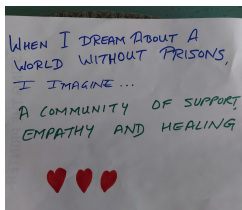 WHEN I DREAM ABOUT A
WORLD WITHOUT PRISONS,
I IMAGINE...
A COMMUNITY OF SUPPORT,
EMPATHY AND HEALING